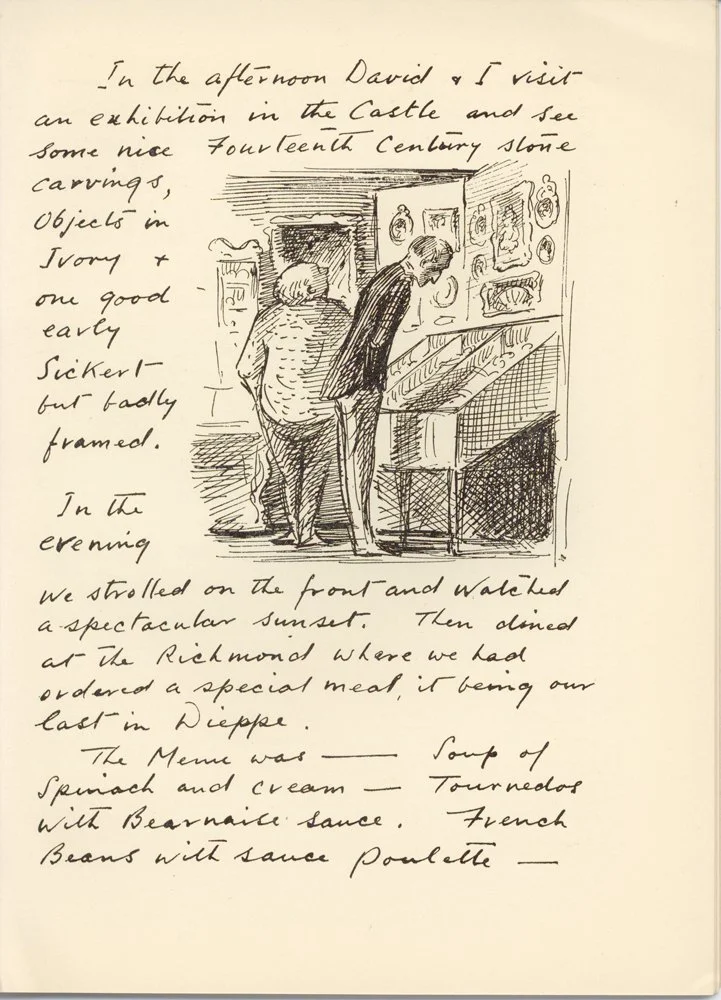 In the afternoon David & I visit
an exhibition in the Castle and see
some nice Fourteenth Century stone
carvings,
Objects in
Ivory &
one good
early
Sickert
but badly
framed.
In the
evening
we strolled on the front and watched
a spectacular sunset. Then dined
at the Richmond where we had
ordered a special meal, it being our
last in Dieppe.
The Menu was — Soup of
Spinach and cream — Tournedos
with Bearnaise sauce. French
Beans with sauce poulette —